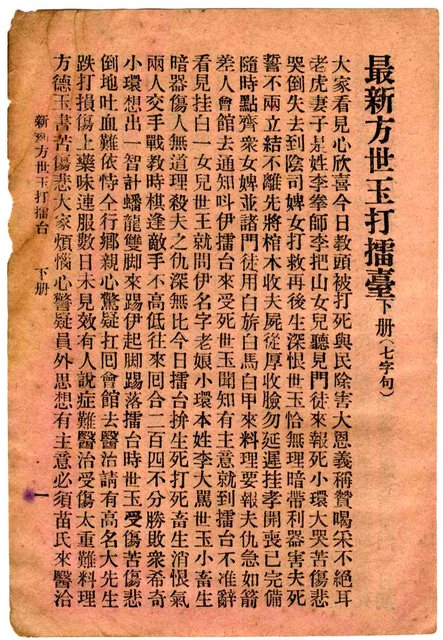 最新方世玉打擂臺下册(七字句)
大家看見心欣喜今日教頭被打死與民除害大恩義稱贊喝采不絕耳
老虎妻子是姓李拳師李把山女兒聽見門徒來報死小環大哭苦傷悲
哭倒失去到陰司婢女打救再後生深恨世玉恰無理暗帶利器害夫死
誓不兩立結不離先將棺木收夫屍從厚收臉勿延遲挂孝開喪已完備
隨時點齊衆女婢並諸門徒用白旂白馬白甲來料理要報夫仇急如箭
差人會館去通知呌伊擂台來受死世玉聞知有主意就到擂台不准辭
看見挂白一女兒世玉就問伊名字老娘小環本姓李大罵世玉小畜生
暗器傷人無道理殺夫之仇深無比今日擂台拚生死打死畜生消恨氣
兩人交手戰數時棋逢敵手不高低往來囘合二百四不分勝敗衆希奇
小環想出一智計蟠龍雙脚來踢伊起脚踢落擂台時世玉受傷苦傷悲
倒地吐血難依恃今行鄉親心驚疑扛囘會館去醫治請有高名大先生
跌打損傷上藥味連服數日未見效有人說症難醫治受傷太重難料理
方德玉書苦傷悲大家煩惱心警疑員外思想有主意必須苗氏來醫治
新刋方世玉打擂台 下册 一